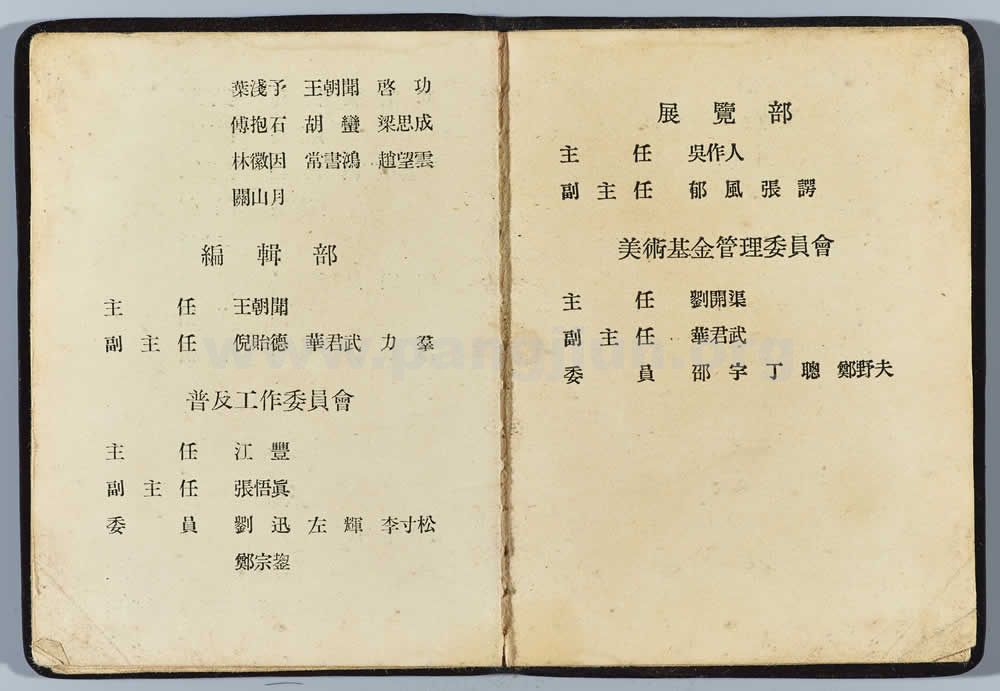 葉淺予 王朝聞 啓功
傅抱石 胡蠻 梁思成
林徽因 常書鴻 趙望雲
關山月
編輯部
主任 王朝聞
副主任 倪貽德 華君武 力羣
普及工作委員會
主任 江豐
副主任 張悟眞
委員 劉迅 左輝 李寸松
鄭宗鋆
展覽部
主任 吳作人
副主任 郁風 張諤
美術基金管理委員會
主任 劉開渠
副主任 華君武
委員 邵宇 丁聰 鄭野夫
www.pangjiun.org